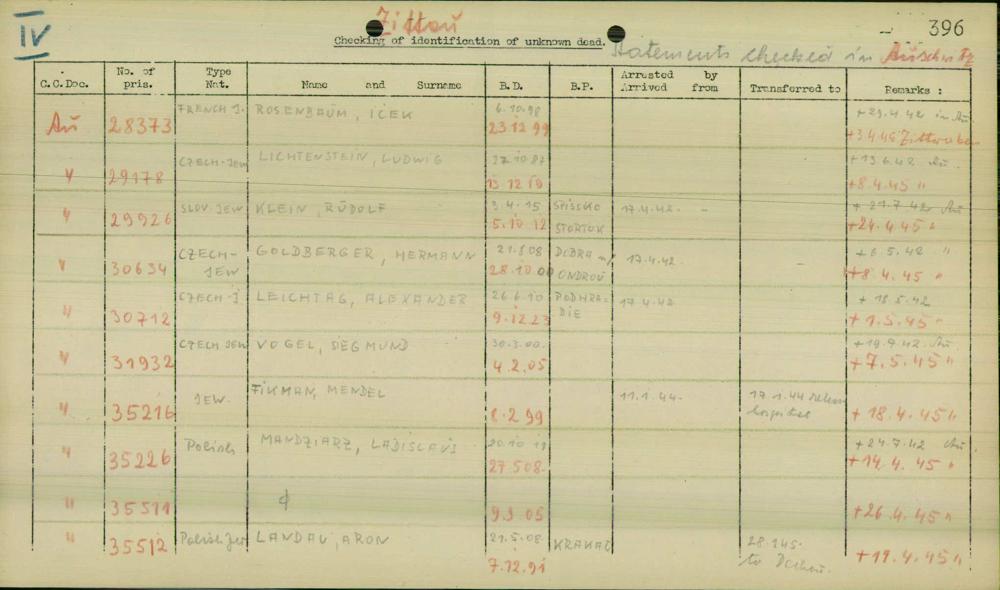 IV
Zittau
396
Checking of identification of unknown dead.
Statements checked in Auschwitz
C.C.Doc. No. of pris. Type Nat. Name and Surname B.D. B.P. Arrested by Arrived from Transferred to Remarks :
FRENCH J. ROSENBAUM, ICEK 6.10.98 + 29.4.42 in Au
Au 28373 23 12 99 +3.4.45 Zittau
CZECH-JEW LICHTENSTEIN, LUDWIG 27 10 87 + 13 6.42 Au.
" 29178 13 12 10 +8.4.45 "
SLOV JEW KLEIN, RUDOLF 3.4.15 SPISSKO 17.4.42. - + 21.7.42 Au
" 29926 5.10 12 STORTOK +24.4.45 "
CZECH- GOLDBERGER, HERMANN 21.8 08 DOBRA n/ 17.4.42. + 6.5.42 "
" 30634 JEW 28.10.00 ONDROU +8 4.45 "
CZECH-J LEICHTAG, ALEXANDER 26 6.10 PODHRA- 17 4.42 + 18.5.42
" 30712 9.12.23 DIE + 1.5.45 "
CZECH JEW VOGEL, SIEGMUND 30.3.00. + 19.9.42 Au.
" 31932 4.2.05 +7.5.45 "
JEW. FIKMAN, MENDEL 11.1.44. 17.1.44
" 35216 8.2 99 hospital + 18.4.45 "
Polish MANDZIARZ, LADISLAUS 20.10 19 + 24.7.42 Au.
" 35226 27 5 08. + 14.4.45 "
" 35511 ϕ 9.3 05 + 26.4.45 "
" 35512 Polish Jew LANDAU, ARON 21.5.08. KRAKAU 28.1 45.
7.12.91 to Dachau. + 19.4.45 "